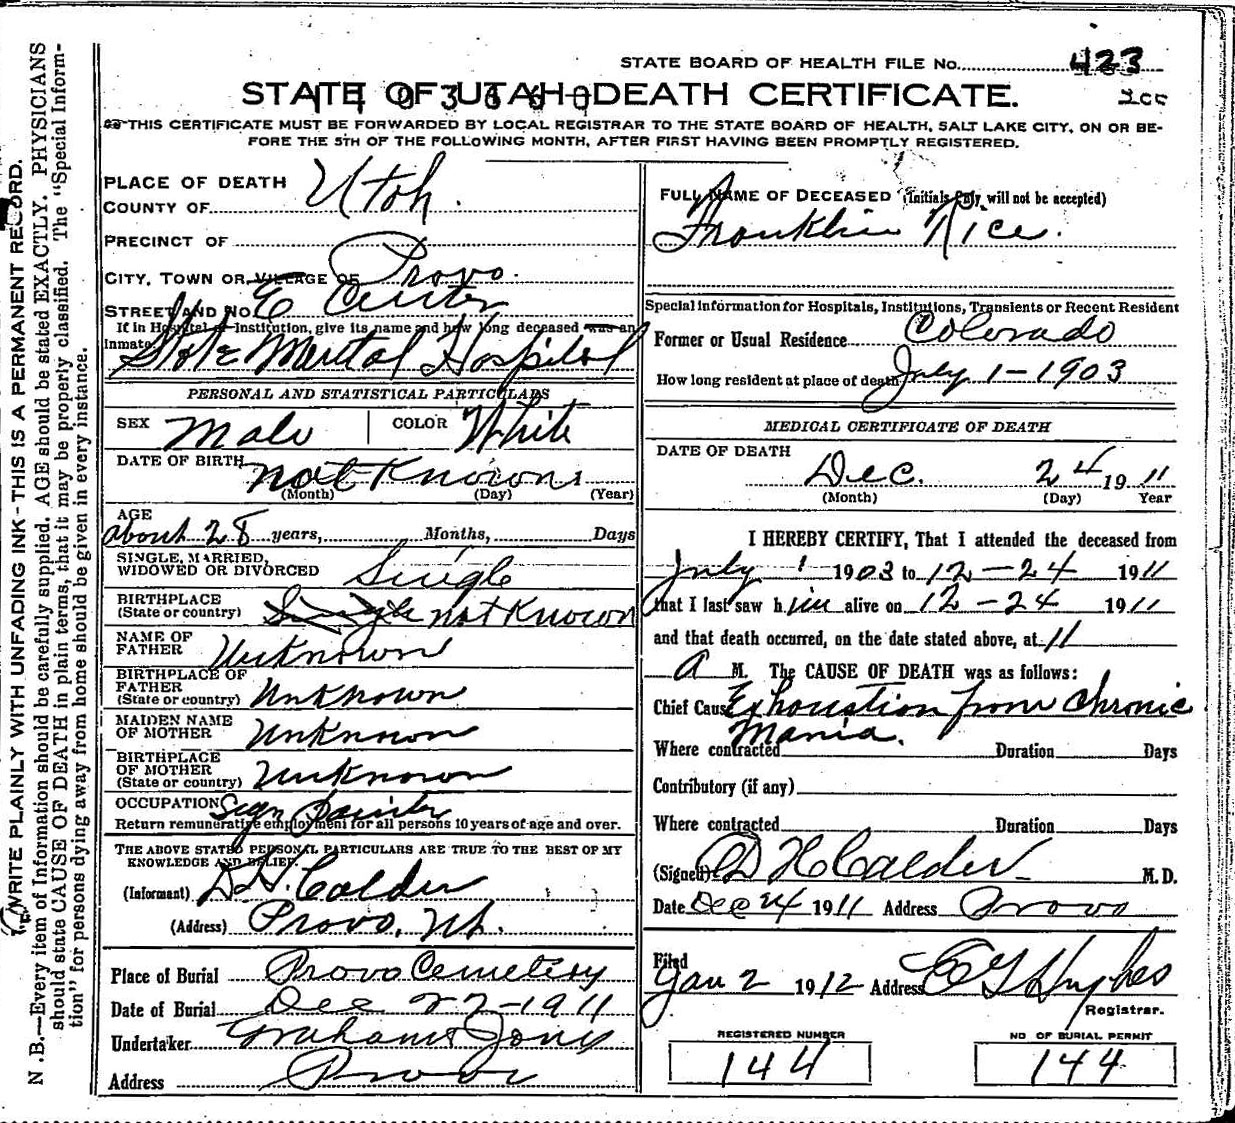 STATE BOARD OF HEALTH FILE No. 423
STATE OF UTAH-DEATH CERTIFICATE.
THIS CERTIFICATE MUST BE FORWARDED BY LOCAL REGISTRAR TO THE STATE BOARD OF HEALTH, SALT LAKE CITY, ON OR BE-
FORE THE 5TH OF THE FOLLOWING MONTH, AFTER FIRST HAVING BEEN PROMPTLY REGISTERED.
N.B.—Every item of Information should be carefully supplied. AGE should be stated EXACTLY. PHYSICIANS
should state CAUSE OF DEATH in plain terms, that it may be properly classified. The "Special Inform-
tion" for persons dying away from home should be given in every instance.
WRITE PLAINLY WITH UNFADING INK-THIS IS A PERMANENT RECORD.
PLACE OF DEATH
COUNTY OF Utah.
PRECINCT OF
CITY, TOWN OR VILLAGE OF Provo.
STREET AND NO. E Center
If in Hospital or Institution, give its name and how long deceased was an
Inmate
State Mental Hospital
PERSONAL AND STATISTICAL PARTICULARS
SEX Male COLOR White
DATE OF BIRTH not Known
(Month) (Day) (Year)
AGE
about 28 years, Months, Days
SINGLE, MARRIED,
WIDOWED OR DIVORCED Single
BIRTHPLACE
(State or country) Single not Known
NAME OF
FATHER Unknown
BIRTHPLACE OF
FATHER
(State or country) Unknown
MAIDEN NAME
OF MOTHER Unknown
BIRTHPLACE
OF MOTHER
(State or country) Unknown
OCCUPATION Sign Painter
Return remunerative employment for all persons 10 years of age and over.
THE ABOVE STATED PERSONAL PARTICULARS ARE TRUE TO THE BEST OF MY
KNOWLEDGE AND BELIEF.
(Informant) D H. Calder
(Address) Provo, Ut.
Place of Burial Provo Cemetery
Date of Burial Dec 27-1911
Undertaker Graham & Jones
Address Provo
FULL NAME OF DECEASED (Initials only will not be accepted)
Franklin Rice.
Special information for Hospitals, Institutions, Transients or Recent Resident
Former or Usual Residence Colorado
How long resident at place of death July 1-1903
MEDICAL CERTIFICATE OF DEATH
DATE OF DEATH
Dec. 24 1911
(Month) (Day) Year
I HEREBY CERTIFY, That I attended the deceased from
July 1 1903 to 12-24 1911
that I last saw him alive on 12-24 1911
and that death occurred, on the date stated above, at 11
A M. The CAUSE OF DEATH was as follows:
Chief Cause Exhaustion from Chronic
Mania.
Where contracted Duration Days
Contributory (if any)
Where contracted Duration Days
(Signed) D H Calder M.D.
Date Dec 24 1911 Address Provo
Filed
Jan 2 1912 Address E G Hughes
Registrar.
REGISTERED NUMBER NO OF BURIAL PERMIT
144 144